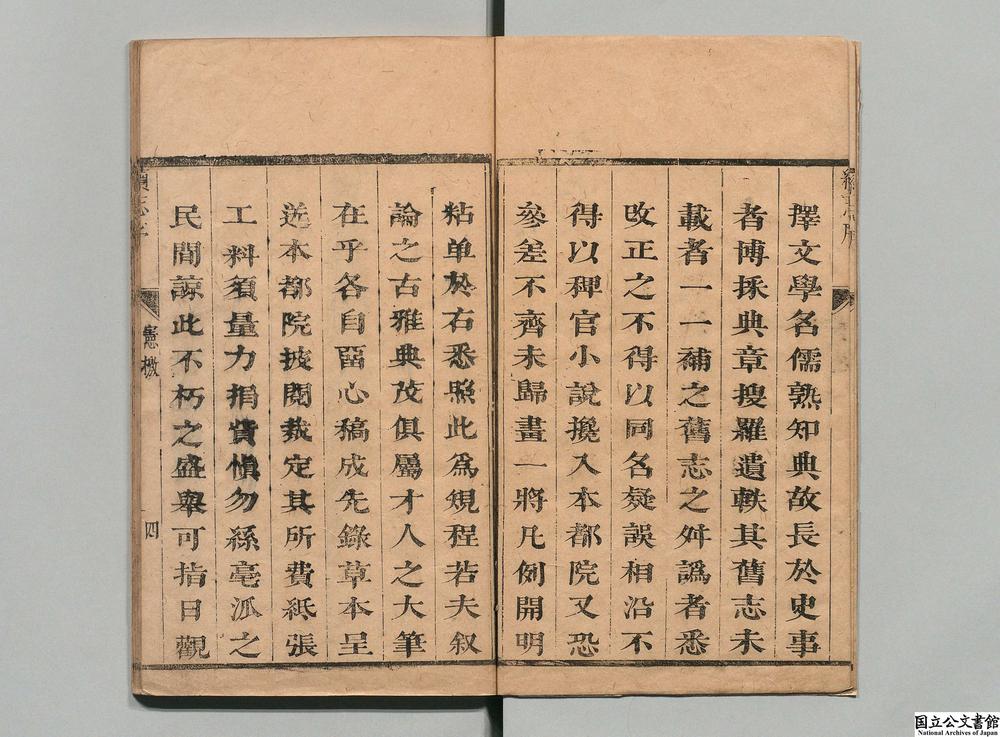 擇文學名儒熟知典故長於史事
者博採典章搜羅遺軼其舊志未
載者一一補之舊志之舛譌者悉
攺正之不得以同名疑誤相沿不
得以稗官小說攙入本都院又恐
參差不齊未歸畫一將凡例開明
粘单於右悉照此爲䂓程若夫叙
論之古雅典茂俱屬才人之大筆
在乎各自畱心稿成先錄草本呈
送本都院披閱裁定其所費紙張
工料須量力捐貲愼勿絲毫派之
民間諒此不朽之盛舉可指日觀
憲檄
四
国立公文書館
National Archives of Japan